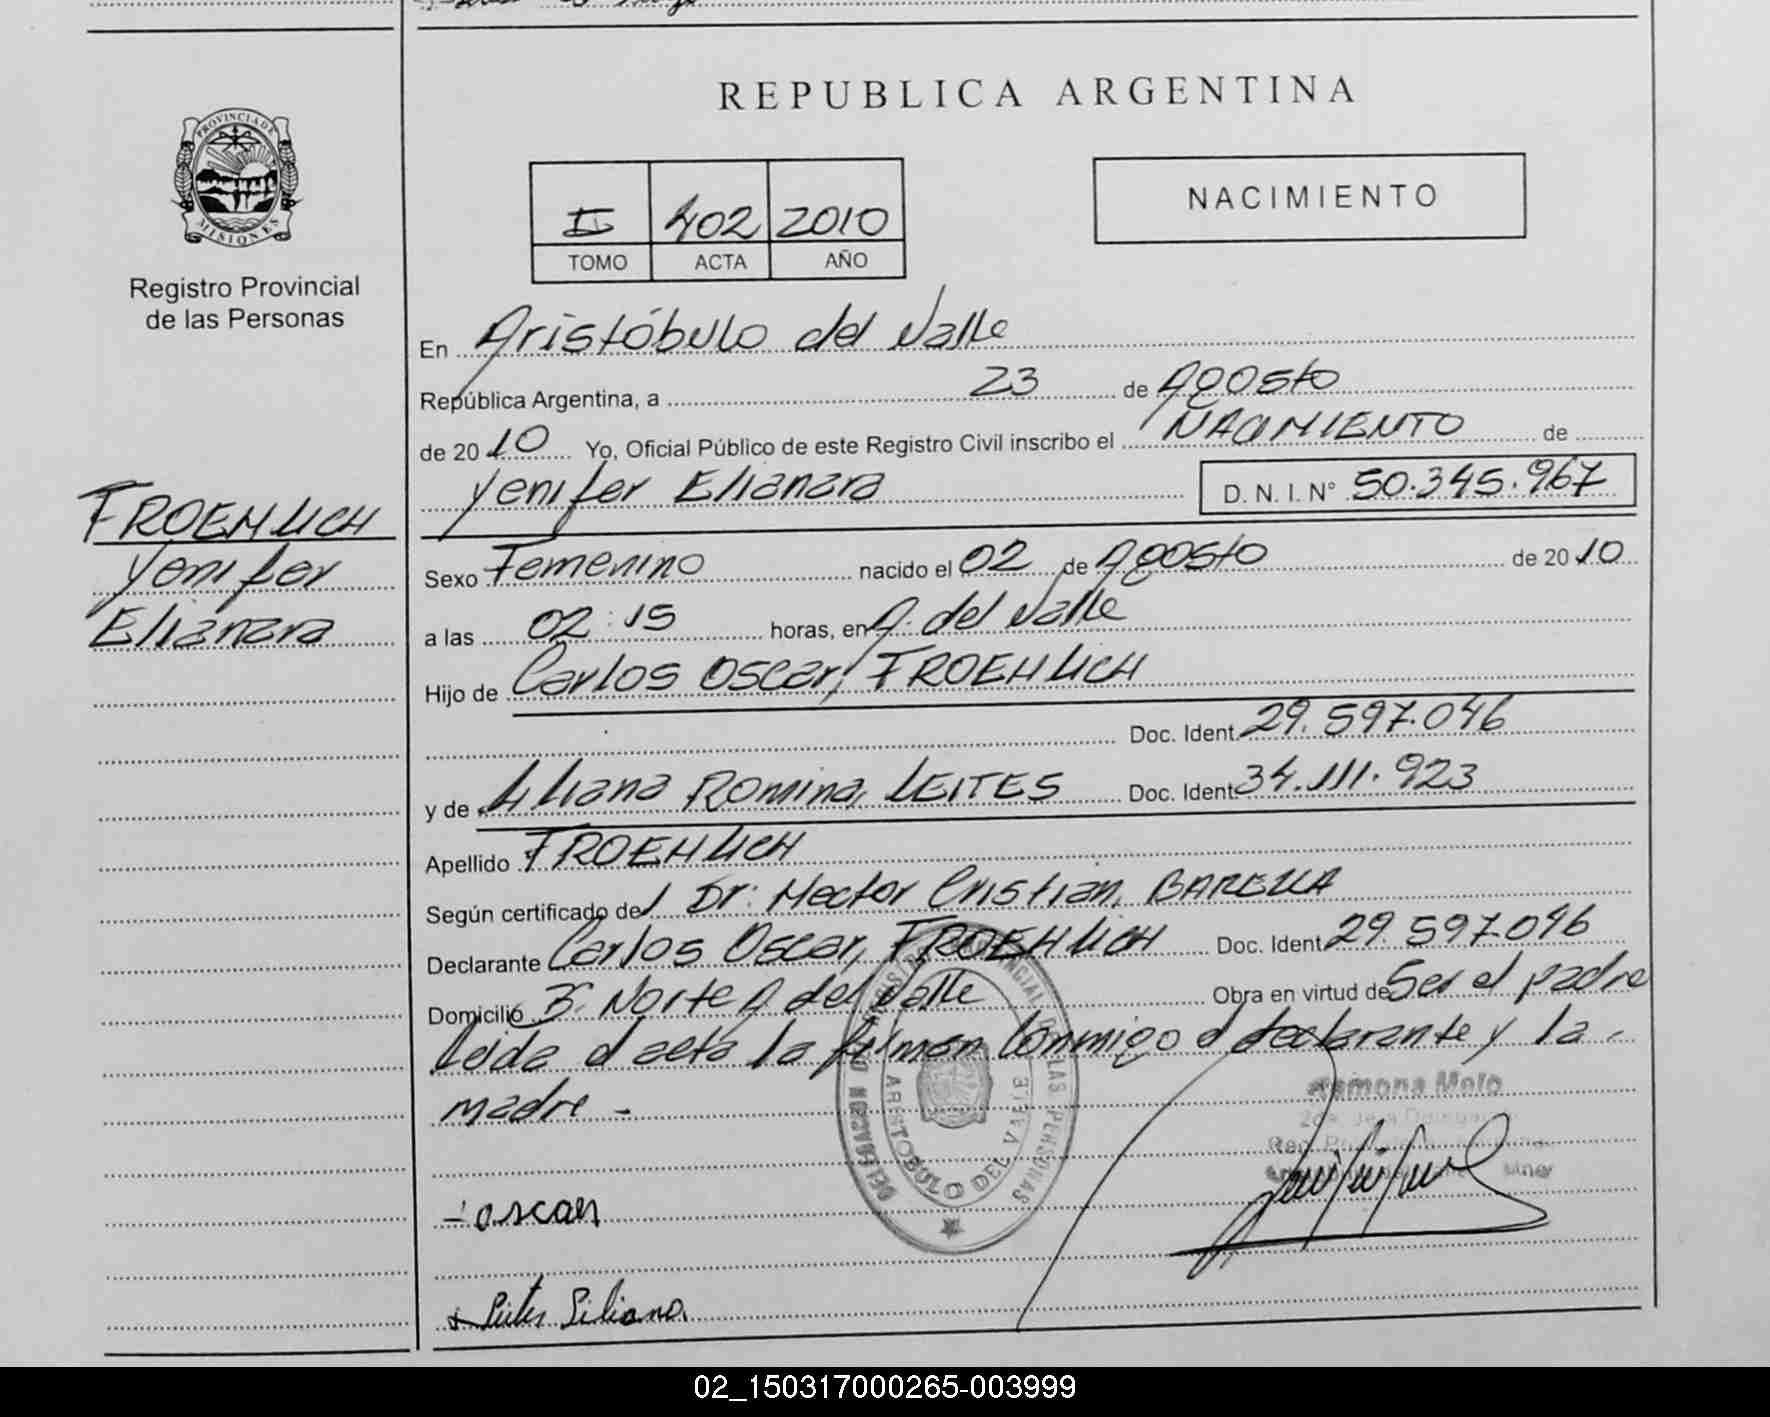 REPUBLICA ARGENTINA
PROVINCIA DE
MISIONES
Registro Provincial
de las Personas
II 402 2010
TOMO ACTA AÑO
NACIMIENTO
En Aristóbulo del Valle
República Argentina, a 23 de Agosto
de 2010 Yo, Oficial Público de este Registro Civil inscribo el NACIMIENTO de
Yenifer Elianara D. N. I. N° 50.345.967
FROEHLICH
Yenifer
Elianara
Sexo Femenino nacido el 02 de Agosto de 2010
a las 02:15 horas, en A. del Valle
Hijo de Carlos Oscar, FROEHLICH
Doc. Ident. 29.597.046
y de Liliana Romina, LEITES Doc. Ident. 34.111.923
Apellido FROEHLICH
Según certificado del Dr: Hector Cristian, BARELLA
Declarante Carlos Oscar, FROEHLICH Doc. Ident 29.597.046
Domicilio B: Norte A. del Valle Obra en virtud de Ser el padre
Leida el acta la firman Conmigo el declarante y la
madre -
DELEGACION DEL REGISTRO PROVINCIAL DE LAS PERSONAS
ARISTOBULO DEL VALLE
Ramona Melo
oscar
Leites Liliana
02_150317000265-003999